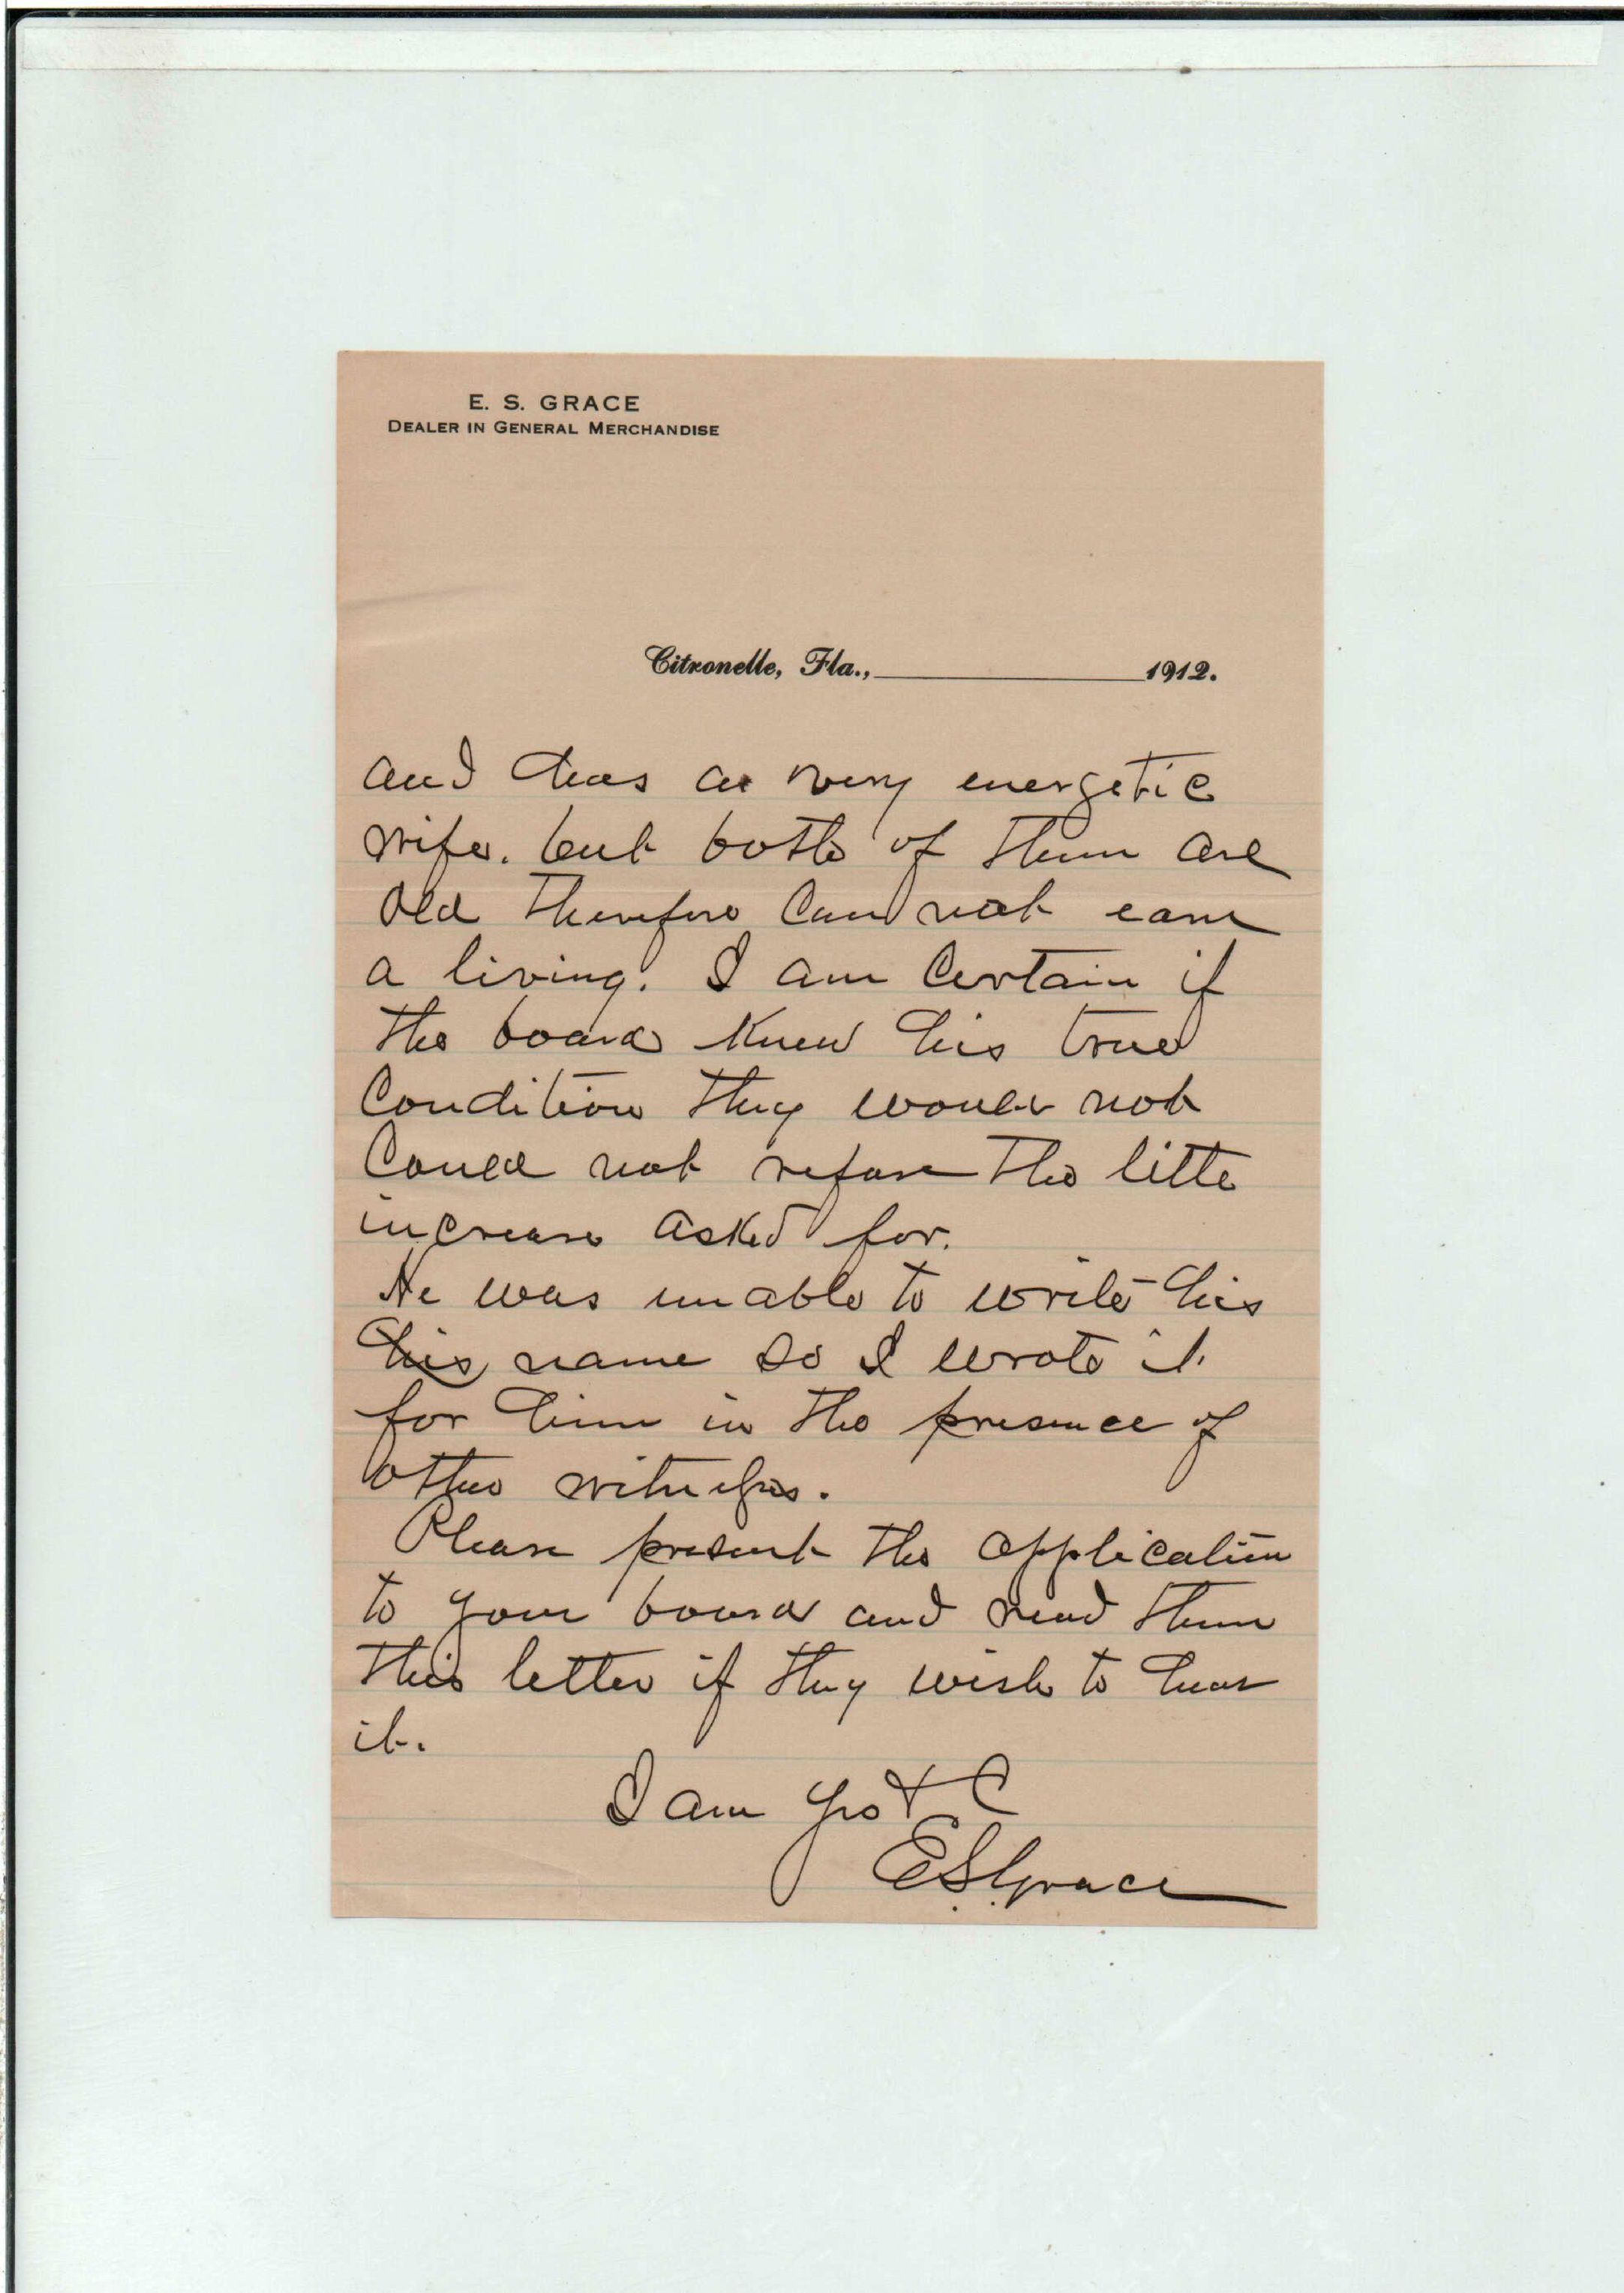 E. S. GRACE
DEALER IN GENERAL MERCHANDISE
Citronelle, Fla., 1912.
and has a very energetic
wife. but both of them are
old therefore can not earn
a living. I am certain if
the board knew his true
condition they would not
could not refuse the little
increase asked for.
He was unable to write his
his name so I wrote it
for him in the presence of
other witnesses.
Please present the application
to your board and read them
this letter if they wish to hear
it.
I am yrs & C
E.S. Grace